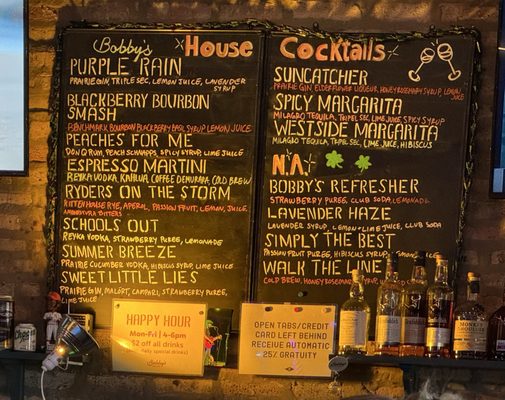 Bobby's House
PURPLE RAIN
PRAIRIE GIN, TRIPLE SEC, LEMON JUICE, LAVENDER
SYRUP
BLACKBERRY BOURBON
SMASH
BENCHMARK BOURBON BLACKBERRY BASIL SYRUP LEMON JUICE
PEACHES FOR ME
DON Q RUM, PEACH SCHNAPPS, SPICY SYRUP, LIME JUICE
ESPRESSO MARTINI
REYKA VODKA, KAHLUA, COFFEE DEMURARA, COLD BREW
RYDERS ON THE STORM
RITTENHOUSE RYE, APEROL, PASSION FRUIT, LEMON JUICE,
ANGOSTURA BITTERS
SCHOOLS OUT
REYKA VODKA, STRAWBERRY PUREE, LEMONADE
SUMMER BREEZE
PRAIRIE CUCUMBER VODKA, HIBISCUS SYRUP, LIME JUICE
SWEET LITTLE LIES
PRAIRIE GIN, MALÖRT, CAMPARI, STRAWBERRY PUREE,
LIME JUICE
Cocktails
SUNCATCHER
PRAIRIE GIN, ELDERFLOWER LIQUEUR, HONEY ROSEMARY SYRUP, LEMON
JUICE
SPICY MARGARITA
MILAGRO TEQUILA, TRIPLE SEC, LIME JUICE, SPICY SYRUP
WESTSIDE MARGARITA
MILAGRO TEQUILA, TRIPLE SEC, LIME JUICE, HIBISCUS
N.A.
BOBBY'S REFRESHER
STRAWBERRY PUREE, CLUB SODA, LEMONADE
LAVENDER HAZE
LAVENDER SYRUP, LEMON + LIME JUICE, CLUB SODA
SIMPLY THE BEST
PASSION FRUIT PUREE, HIBISCUS SYRUP, LIME JUICE
WALK THE LINE
COLD BREW, HONEY ROSEMARY
HAPPY HOUR
Mon-Fri | 4-6pm
$2 off all drinks
(excluding daily special drinks)
Bobby's
OPEN TABS/CREDIT
CARD LEFT BEHIND
RECEIVE AUTOMATIC
25% GRATUITY